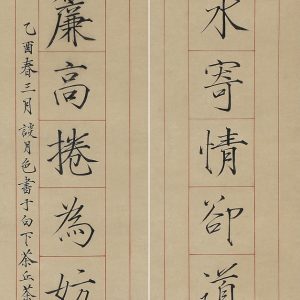 水寄情卻道
簾高捲為妨
乙酉春三月談月色書于白下茶丘茶